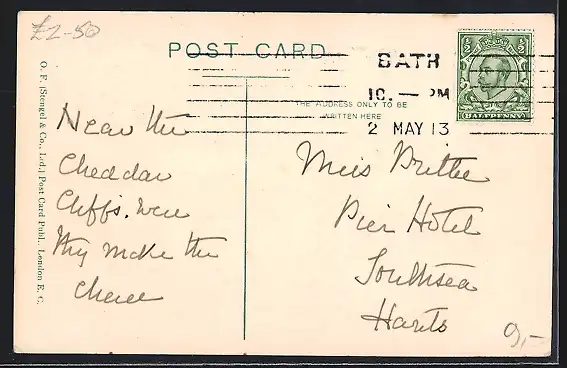 £2-50
POST CARD
BATH
10. — PM
2 MAY 13
THE ADDRESS ONLY TO BE
WRITTEN HERE
½ ½
HALFPENNY
O. F. (Stengel & Co., Ltd.) Post Card Publ., London E. C.
Near the
Cheddar
Cliffs. Were
they make the
cheese
Miss Brittee
Pier Hotel
Southsea
Hants
9,-